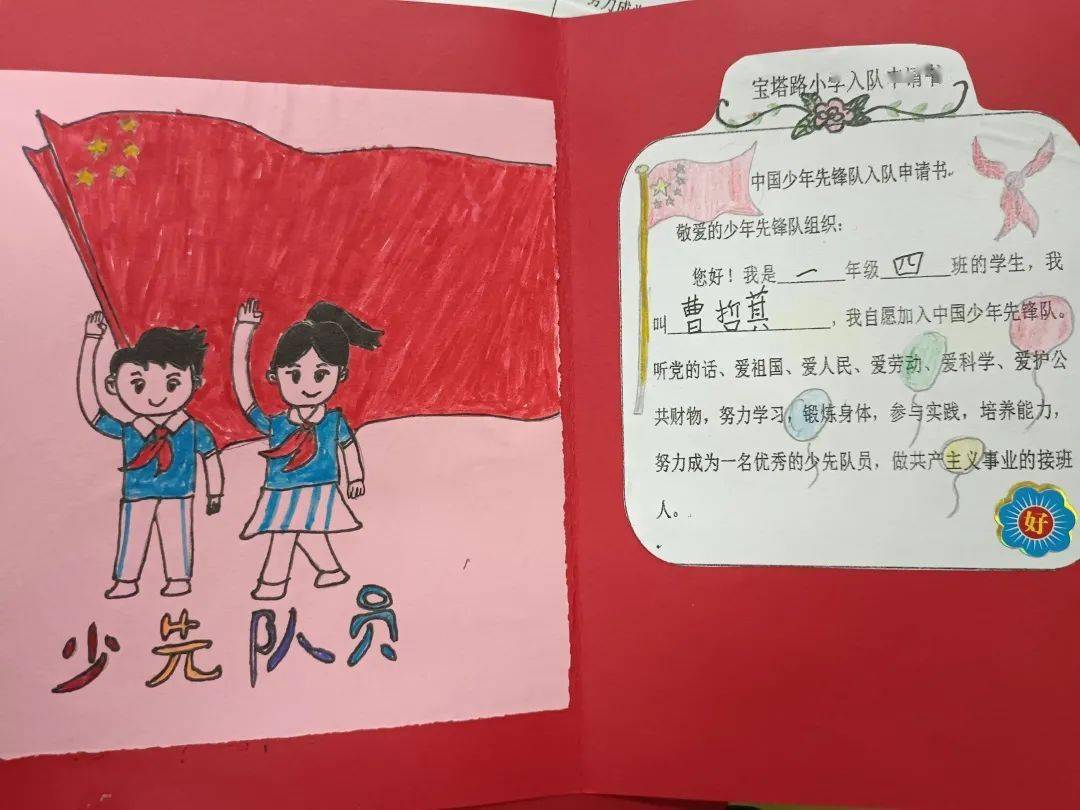 少先队员
宝塔路小学入队申请书
中国少年先锋队入队申请书
敬爱的少年先锋队组织：
您好！我是一年级四班的学生，我
叫曹哲萁，我自愿加入中国少年先锋队。
听党的话、爱祖国、爱人民、爱劳动、爱科学、爱护公
共财物，努力学习，锻炼身体，参与实践，培养能力，
努力成为一名优秀的少先队员，做共产主义事业的接班
人。
好